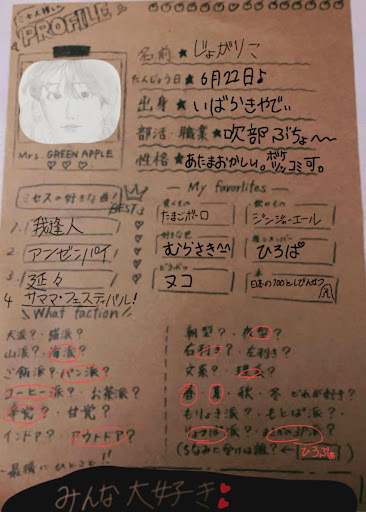 PROFILE
名前★じょがりこ
たんじょう日★6月22日♪
出身★いばらきやでぃ
部活・職業★吹部ぶちょ〜
性格★あたまおかしい。ボケツッコミ可。
Mrs. GREEN APPLE
♡ ♡ ♡
ミセスの好きな曲!
BEST3
1. 我逢人
2. アンゼンパイ
3. 延々
4 サママ・フェスティバル!
My favorites
食べもの
たまごボーロ
飲みもの
ジンジャーエール
好きな色
むらさき^^
ひろぱ
どうぶつ
ヌコ
What faction
犬派?・猫派?
山派?・海派?
ご飯派?・パン派?
コーヒー派?・お茶派?
辛党?・甘党?
インドア?・アウトドア?
朝型?・夜型?
右利き?・左利き?
文系?・理系?
春・夏・秋・冬 どれが好き?
もりょき派?・もとぱ派?・
りょつぱ派?
(ちなみに
は誰?←ひろぱ
〜最後にひとこと!!
みんな大好き